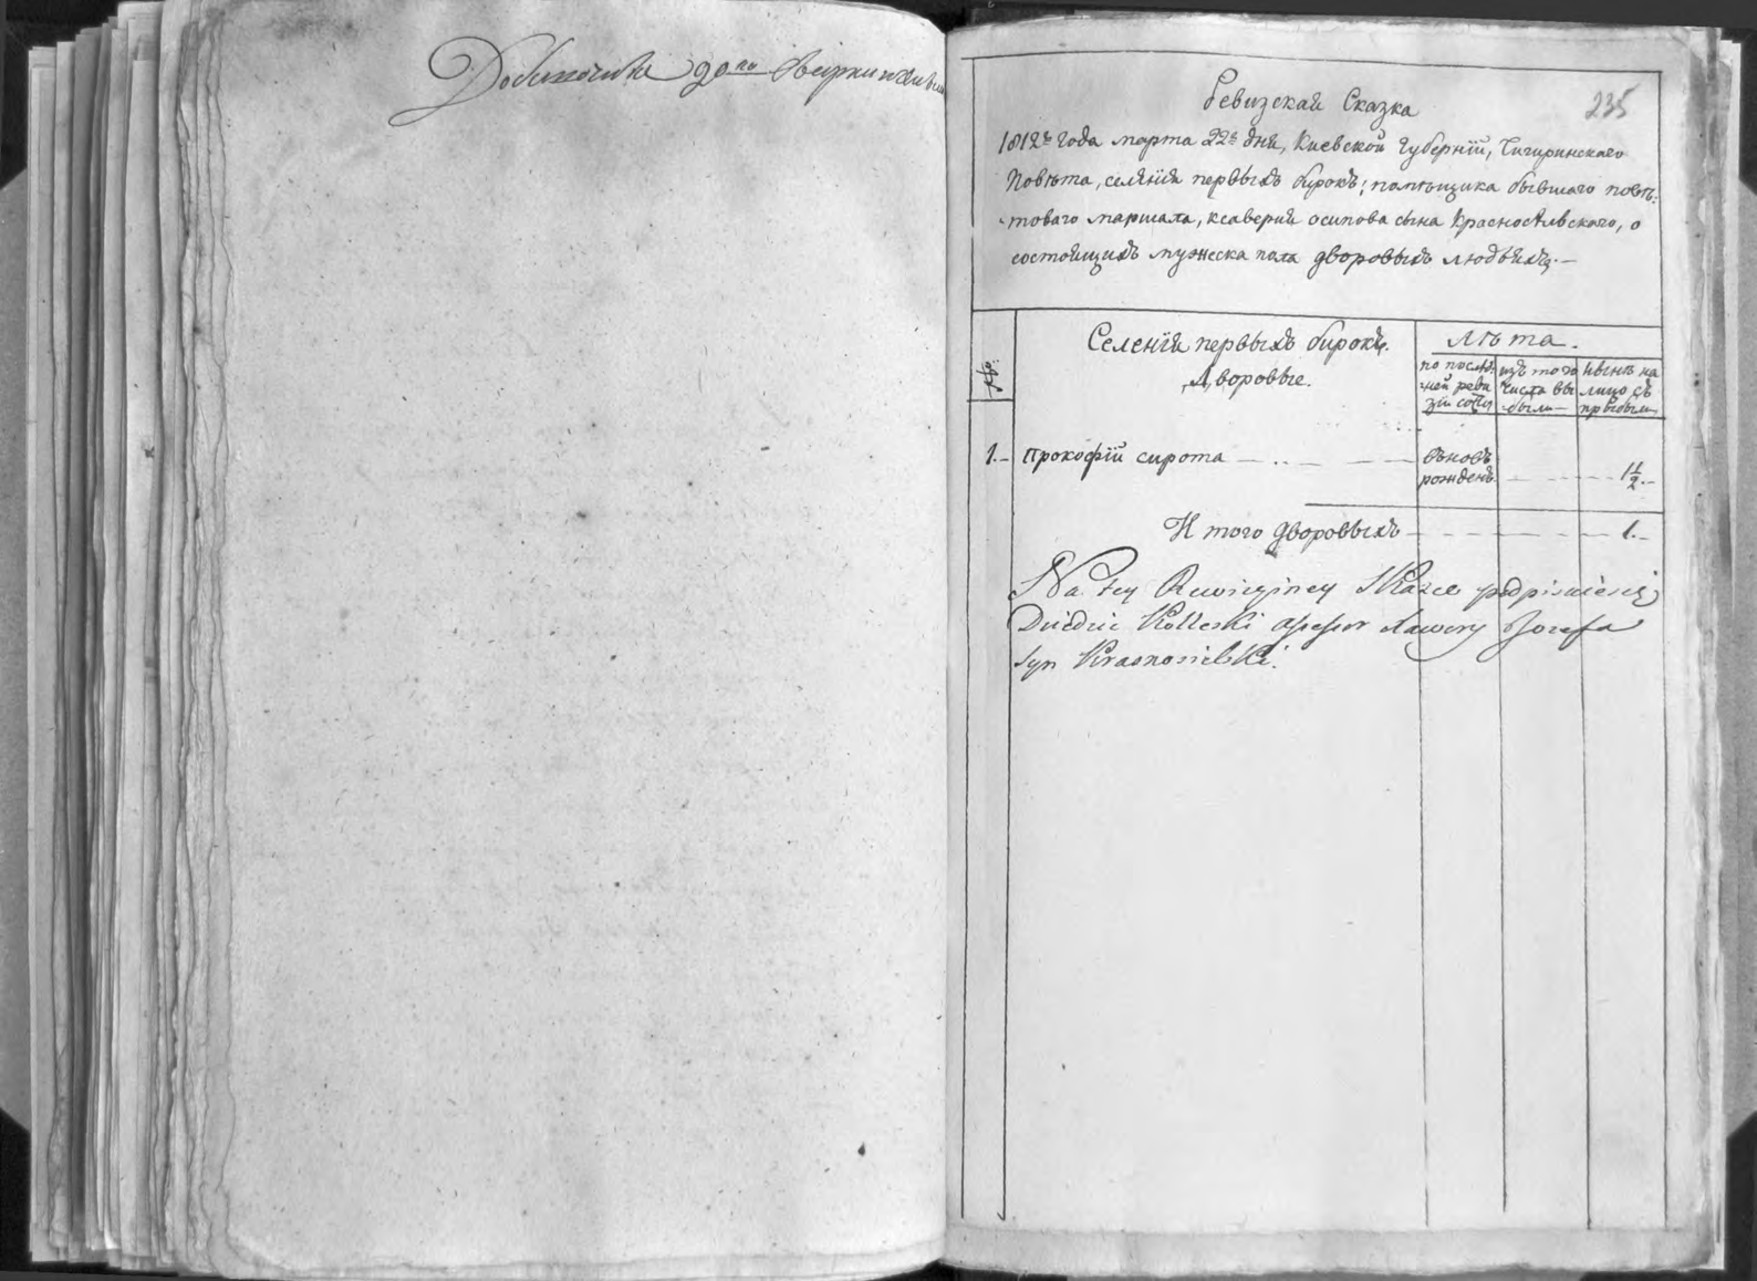 235
Ревизская Сказка
1812г года марта 22г дня, Киевской Губернїи, Чигиринскаго
Повѣта, селенїя первыхъ бирокъ; помѣщика бывшаго повѣ:
:товаго маршала, ксаверия осипова сына Красносѣлвского, о
состоящихъ мужеска пола дворовыхъ людѣяхъ.—
№:
Селенїя первыхъ бирокъ.
Дворовые.
лѣта.
по послѣ:
:ней реви
зїи состоя
изъ того
числа вы
были—
нынѣ на
лицо съ
прыбыли
1.— Прокофїй сирота — .. — — — вновъ
рожденъ — — — 1½.—
И того дворовыхъ — — — — 1.—
Na tey Rewizyiney Skazce podpisuie się
Dziedzic Kolleski assessor xawery Jozefa
syn Krasnosielski.